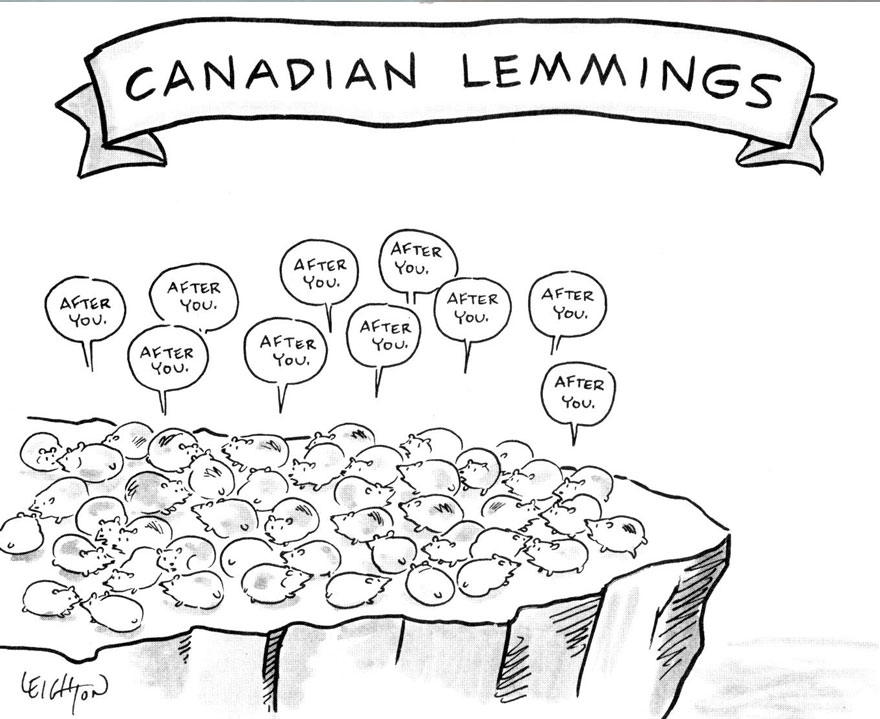 CANADIAN LEMMINGS
AFTER
YOU.
AFTER
YOU.
AFTER
YOU.
AFTER
YOU.
AFTER
YOU.
AFTER
YOU.
AFTER
YOU.
AFTER
YOU.
AFTER
YOU.
AFTER
YOU.
LEIGHTON